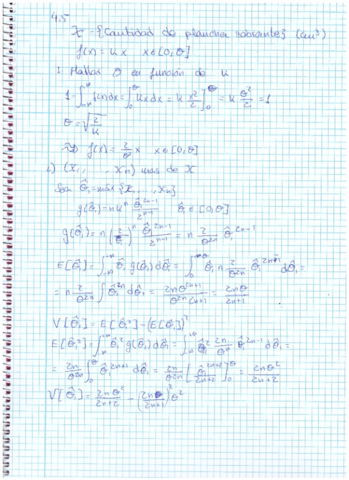 4.5
X = {Cantidad de plancha sobrante} (cm²)
f(x) = kx x∈[0, θ]
1. Hallar θ en función de k
1 = ∫_{-∞}^{+∞} f(x)dx = ∫_0^θ kxdx = k x²/2 ]_0^θ = k θ²/2 = 1
θ = √(2/k)
f(x) = 2/θ² x x∈[0, θ]
(X₁, ..., Xn) mas de X
Sea θ̂₁ = máx {X₁, ..., Xn}
g(θ̂₁) = n kⁿ θ̂₁^{2n-1}/2^{n-1} θ̂₁ ∈ [0, θ]
g(θ̂₁) = n (2/θ²)ⁿ θ̂₁^{2n-1}/2^{n-1} = n 2/θ^{2n} θ̂₁^{2n-1}
E[θ̂₁] = ∫_{-∞}^{+∞} θ̂₁ g(θ̂₁) dθ̂₁ = ∫ θ̂₁ n 2/θ^{2n} θ̂₁^{2n-1} dθ̂₁ =
= n 2/θ^{2n} ∫ θ̂₁^{2n} dθ̂₁ = 2n θ^{2n+1}/θ^{2n} 2n+1 = 2nθ/2n+1
V[θ̂₁] = E[θ̂₁²] - (E[θ̂₁])²
E[θ̂₁²] = ∫_{-∞}^{+∞} θ̂₁² g(θ̂₁) dθ̂₁ = ∫ θ̂₁² 2n/θ^{2n} θ̂₁^{2n-1} dθ̂₁ =
= 2n/θ^{2n} ∫_0^θ θ̂₁^{2n+1} dθ̂₁ = 2n/θ^{2n} [θ̂₁^{2n+2}/2n+2]_0^θ = 2nθ²/2n+2
V[θ̂₁] = 2nθ²/2n+2 - (2n/2n+1)² θ²